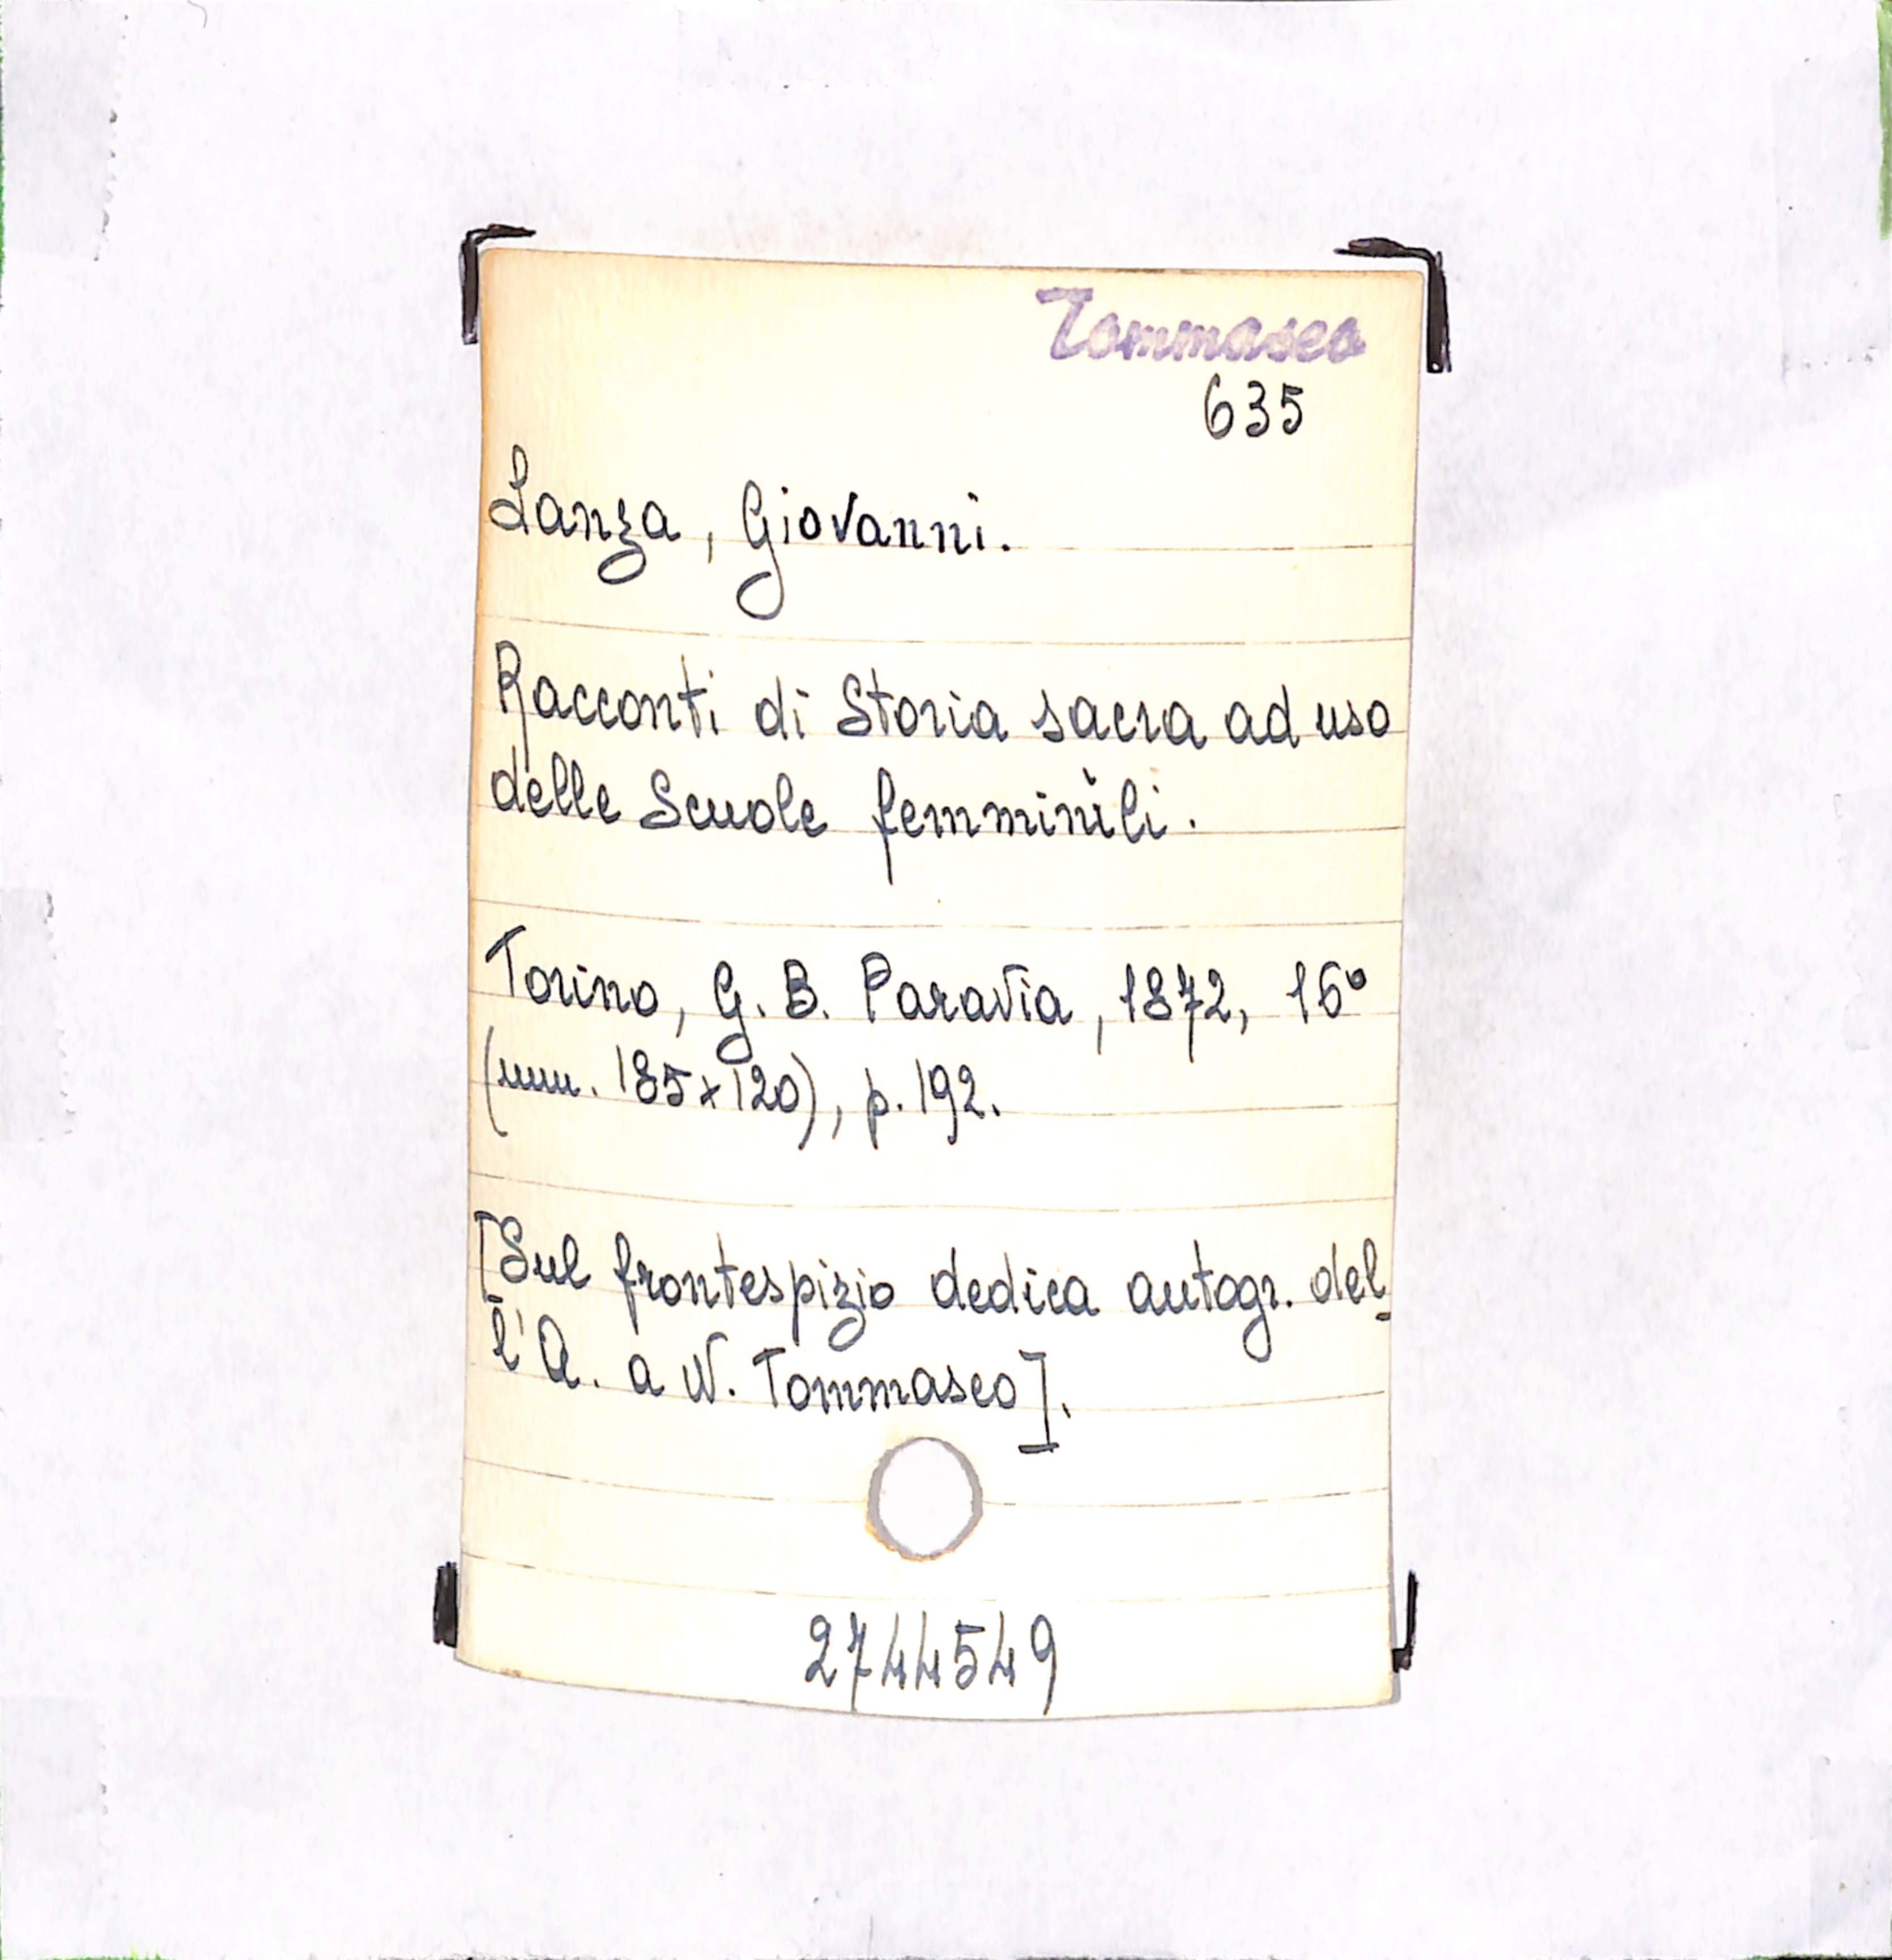 Tommaseo
635
Lanza, Giovanni.
Racconti di Storia sacra ad uso
delle Scuole femminili.
Torino, G. B. Paravia, 1872, 16°
(mm. 185x120), p. 192.
[Sul frontespizio dedica autogr. del-
l'A. a N. Tommaseo].
2744549